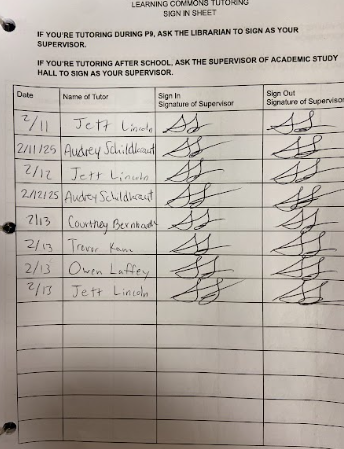 LEARNING COMMONS TUTORING
SIGN IN SHEET
IF YOU'RE TUTORING DURING P9, ASK THE LIBRARIAN TO SIGN AS YOUR
SUPERVISOR.
IF YOU'RE TUTORING AFTER SCHOOL, ASK THE SUPERVISOR OF ACADEMIC STUDY
HALL TO SIGN AS YOUR SUPERVISOR.
Date Name of Tutor Sign In Signature of Supervisor Sign Out Signature of Supervisor
2/11 Jett Lincoln
2/11/25 Audrey Schildkraut
2/12 Jett Lincoln
2/12/25 Audrey Schildkraut
2/13 Courtney Bernhardt
2/13 Trevor
2/13 Owen Laffey
2/13 Jett Lincoln